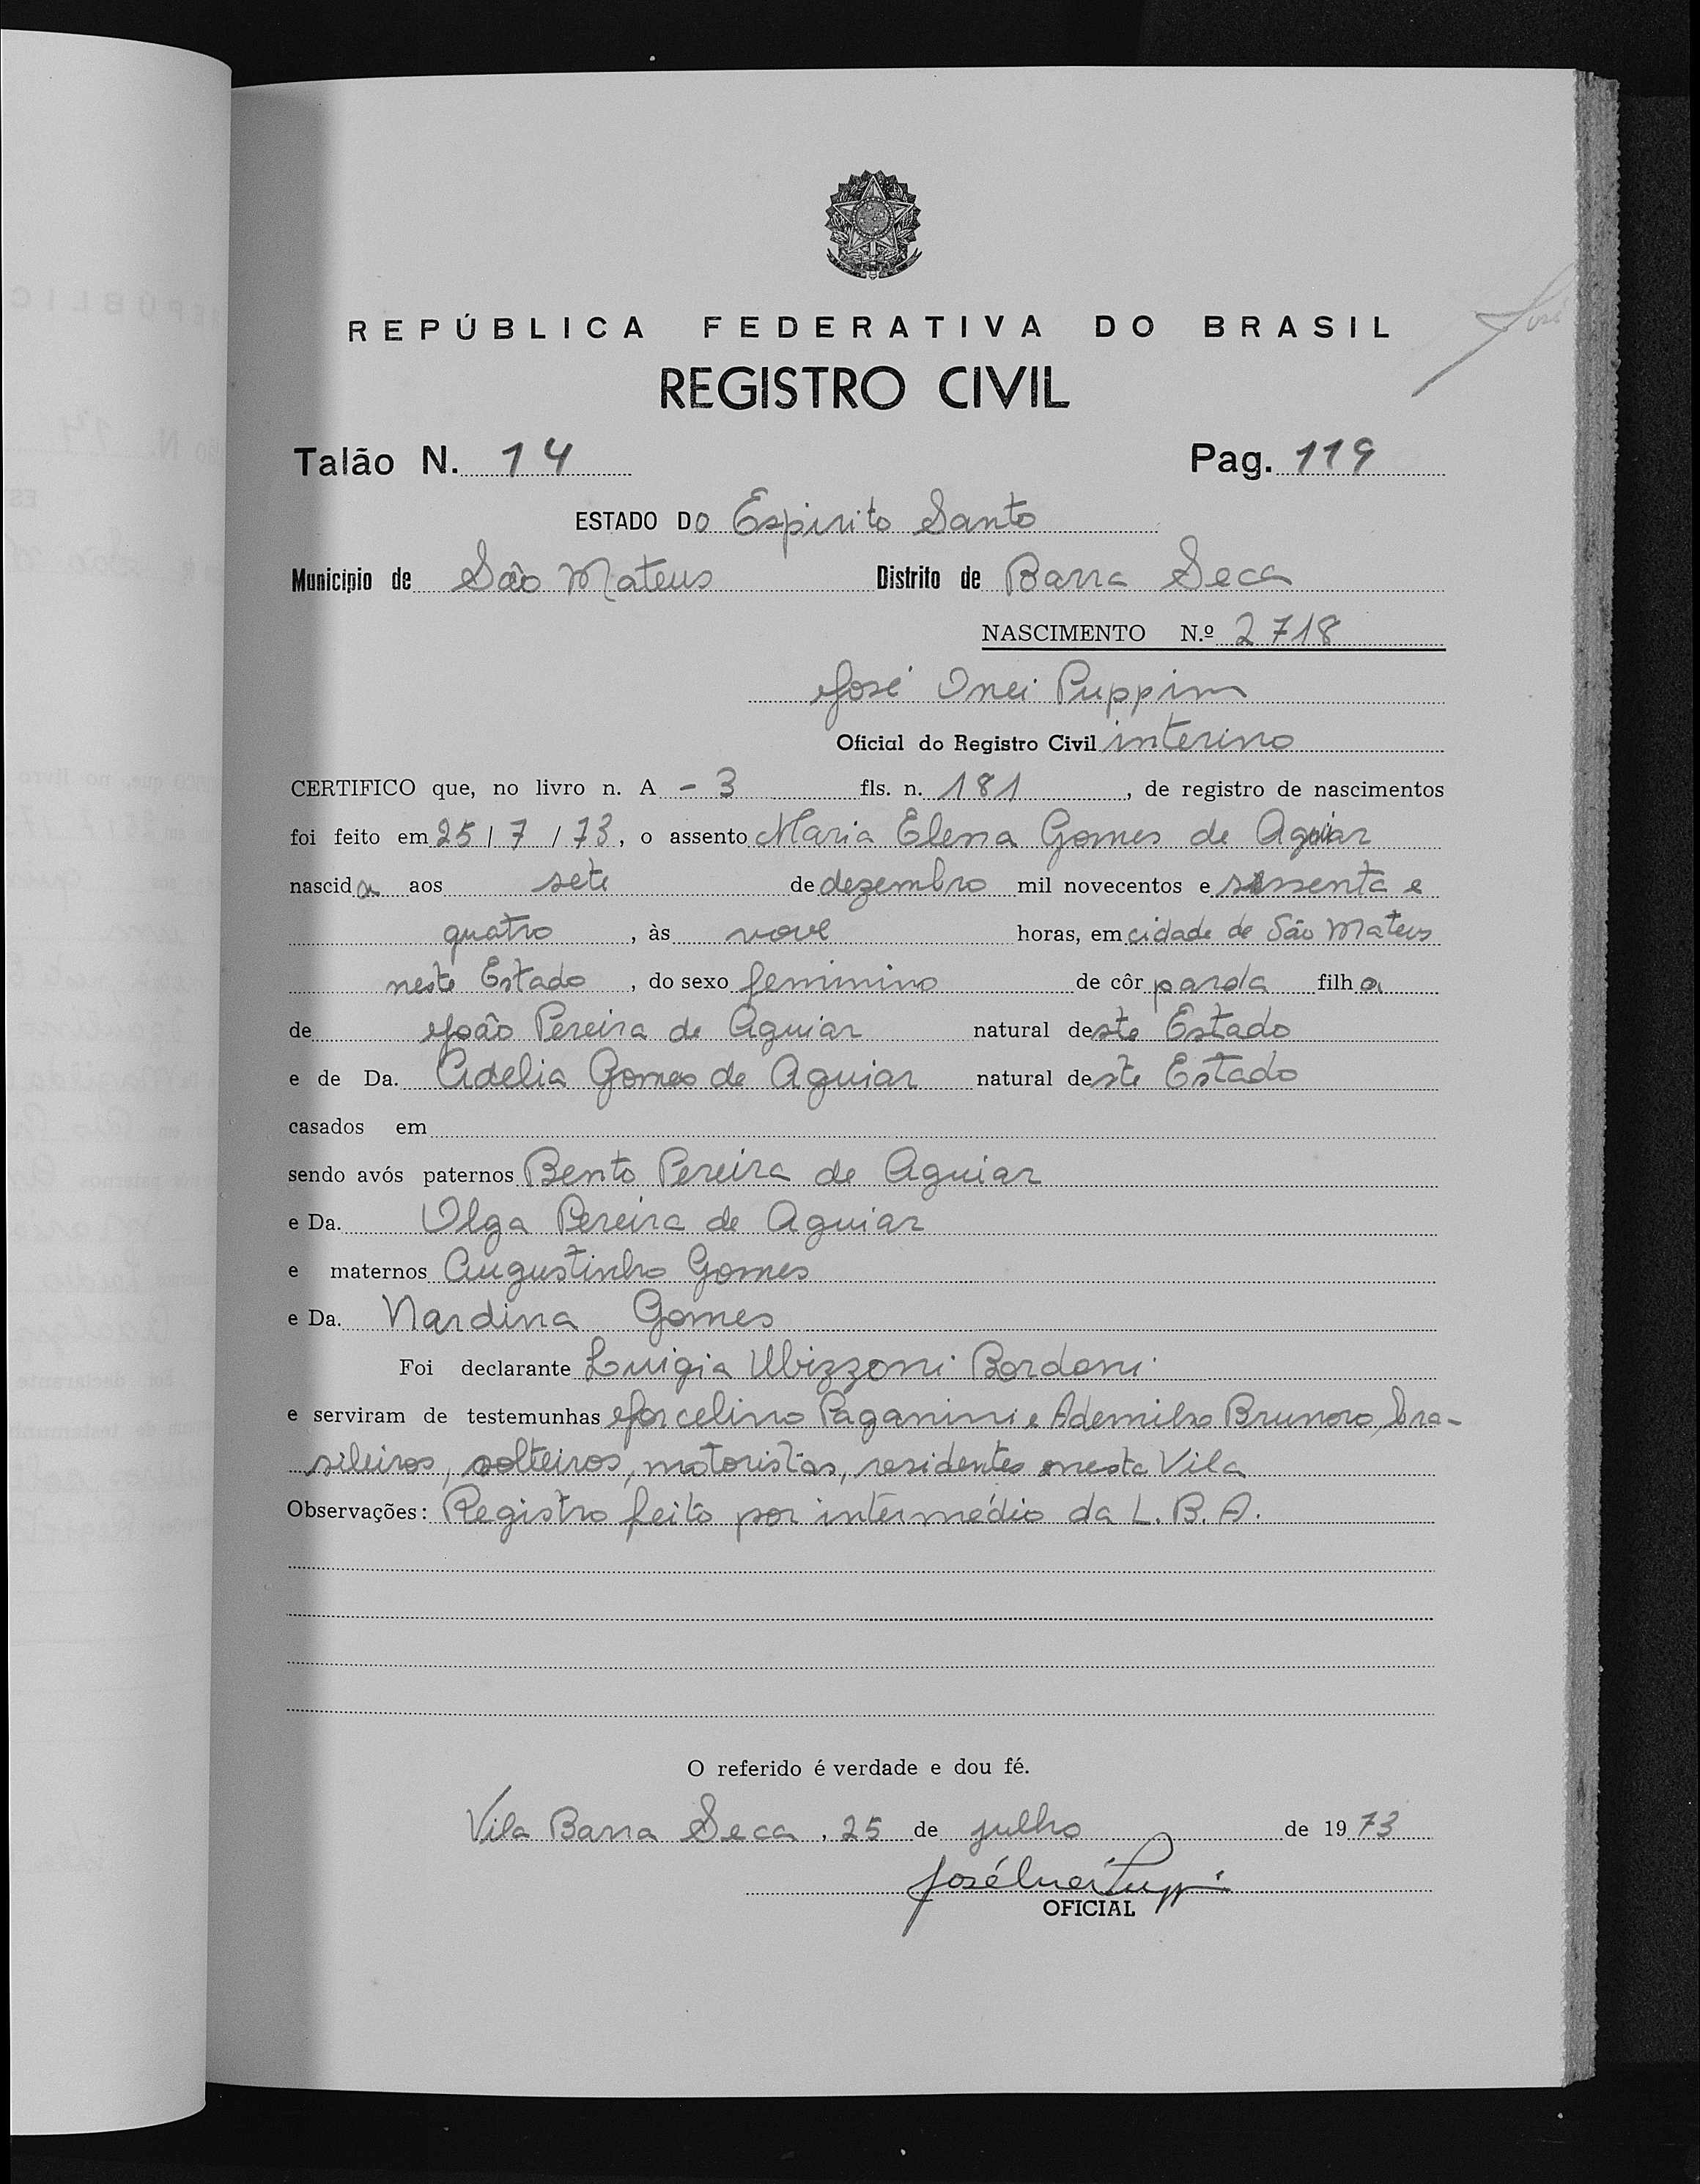 José
REPÚBLICA FEDERATIVA DO BRASIL
REGISTRO CIVIL
Talão N. 14 Pag. 119
ESTADO DO Espirito Santo
Município de São Mateus Distrito de Barra Seca
NASCIMENTO N.º 2718
José Inei Puppim
Oficial do Registro Civil interino
CERTIFICO que, no livro n. A - 3 fls. n. 181, de registro de nascimentos
foi feito em 25/7/73, o assento Maria Elena Gomes de Aguiar
nascida aos sete de dezembro mil novecentos e sessenta e
quatro, às nove horas, em cidade de São Mateus
neste Estado, do sexo feminino de côr parda filha
de João Pereira de Aguiar natural deste Estado
e de Da. Adelia Gomes de Aguiar natural deste Estado
casados em
sendo avós paternos Bento Pereira de Aguiar
e Da. Olga Pereira de Aguiar
e maternos Augustinho Gomes
e Da. Nardina Gomes
Foi declarante Luigia Ubizzoni Bordoni
e serviram de testemunhas Jorcelino Paganini e Ademilso Brunoro, bra-
sileiros, solteiros, motoristas, residentes nesta Vila
Observações: Registro feito por intermédio da L. B. A.
O referido é verdade e dou fé.
Vila Barra Seca, 25 de julho de 1973
José Inei Puppi
OFICIAL